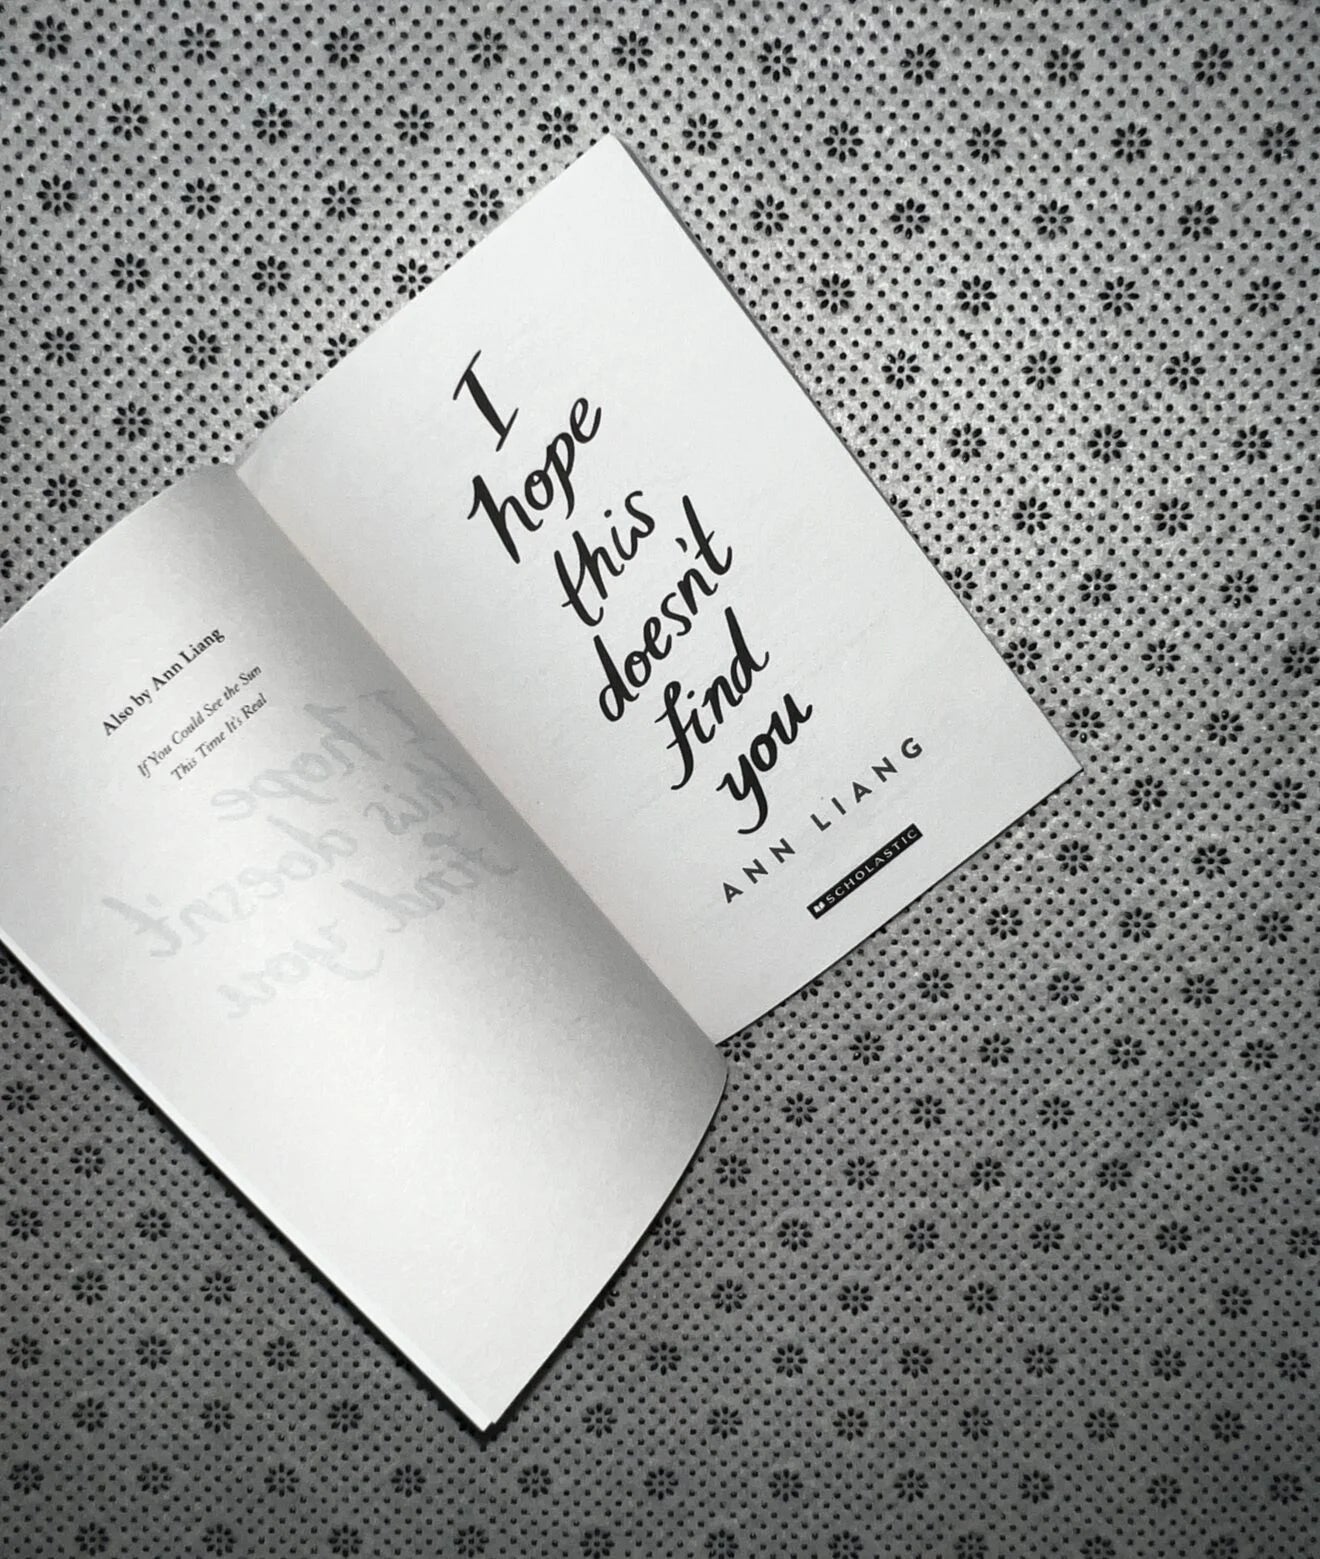 Also by Ann Liang
If You Could See the Sun
This Time It's Real
I
hope
this
doesn't
find
you
ANN LIANG
SCHOLASTIC
I hope
this doesn't
find you